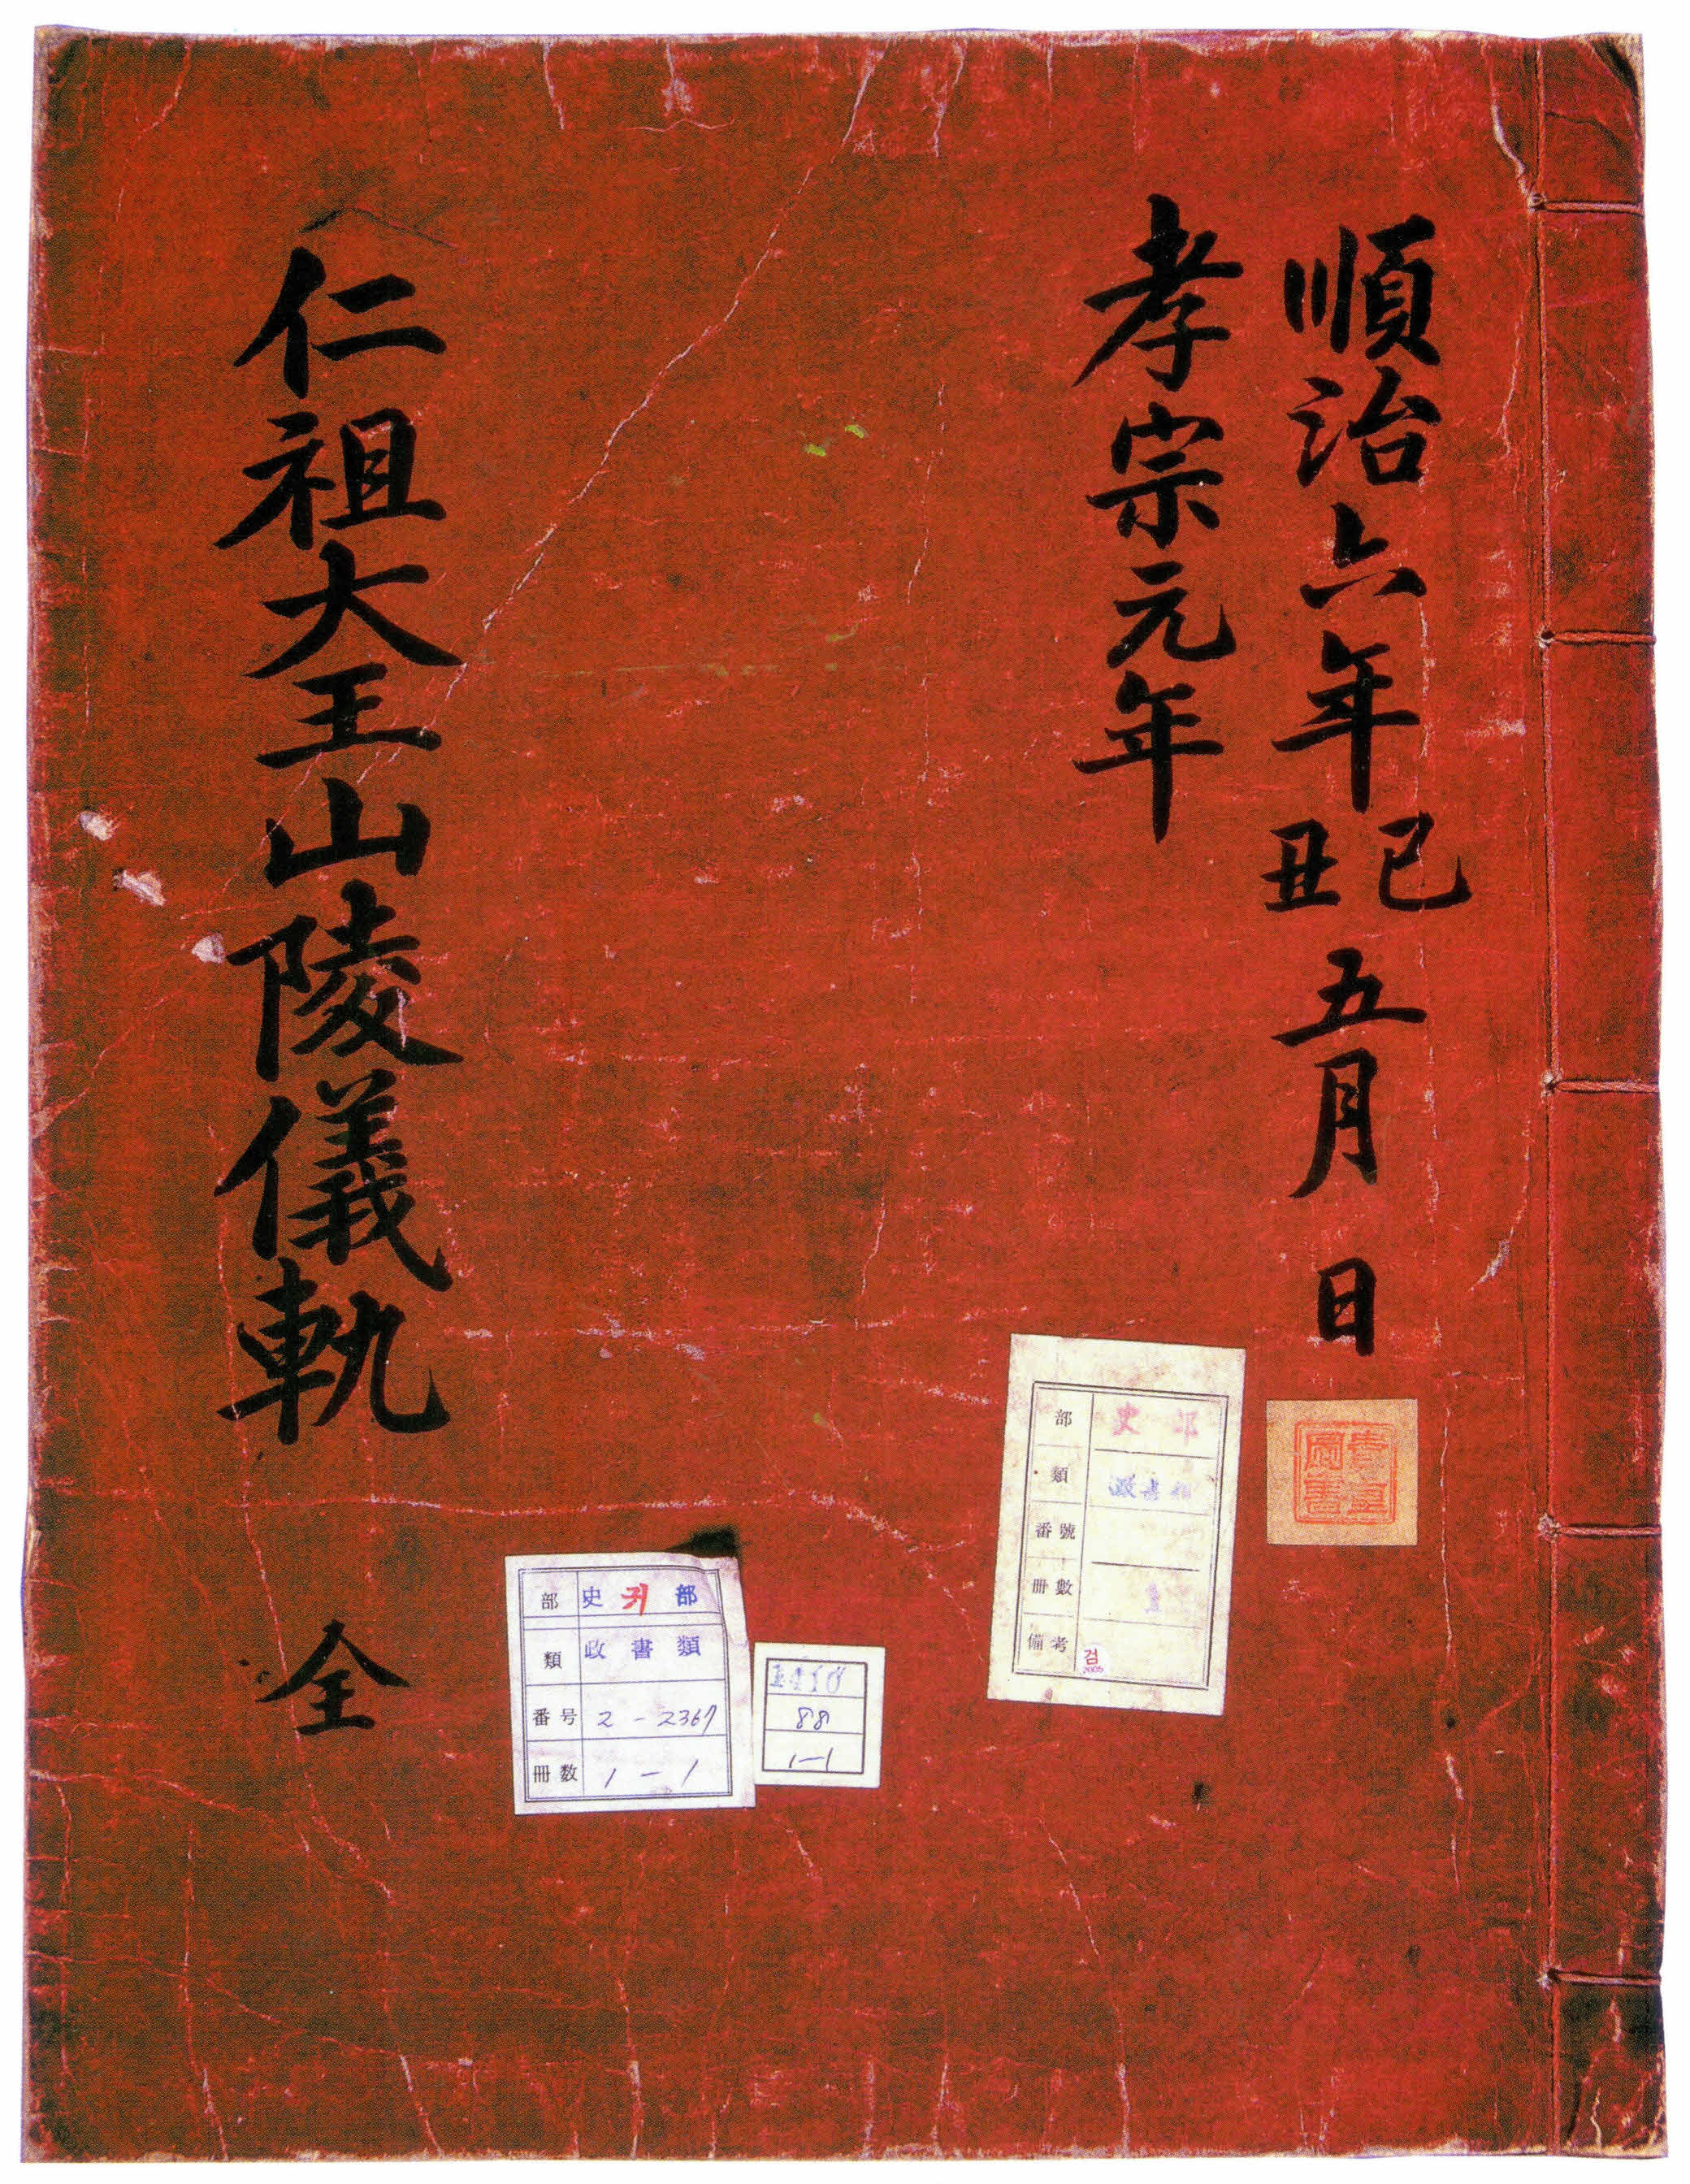 順治六年己丑五月 日
孝宗元年
仁祖大王山陵儀軌 全
部 史 部
類 政書類
番號
冊數
備考
검
2005
部 史 귀 部
類 政書類
番号 2-2367
冊数 1-1
88
1-1